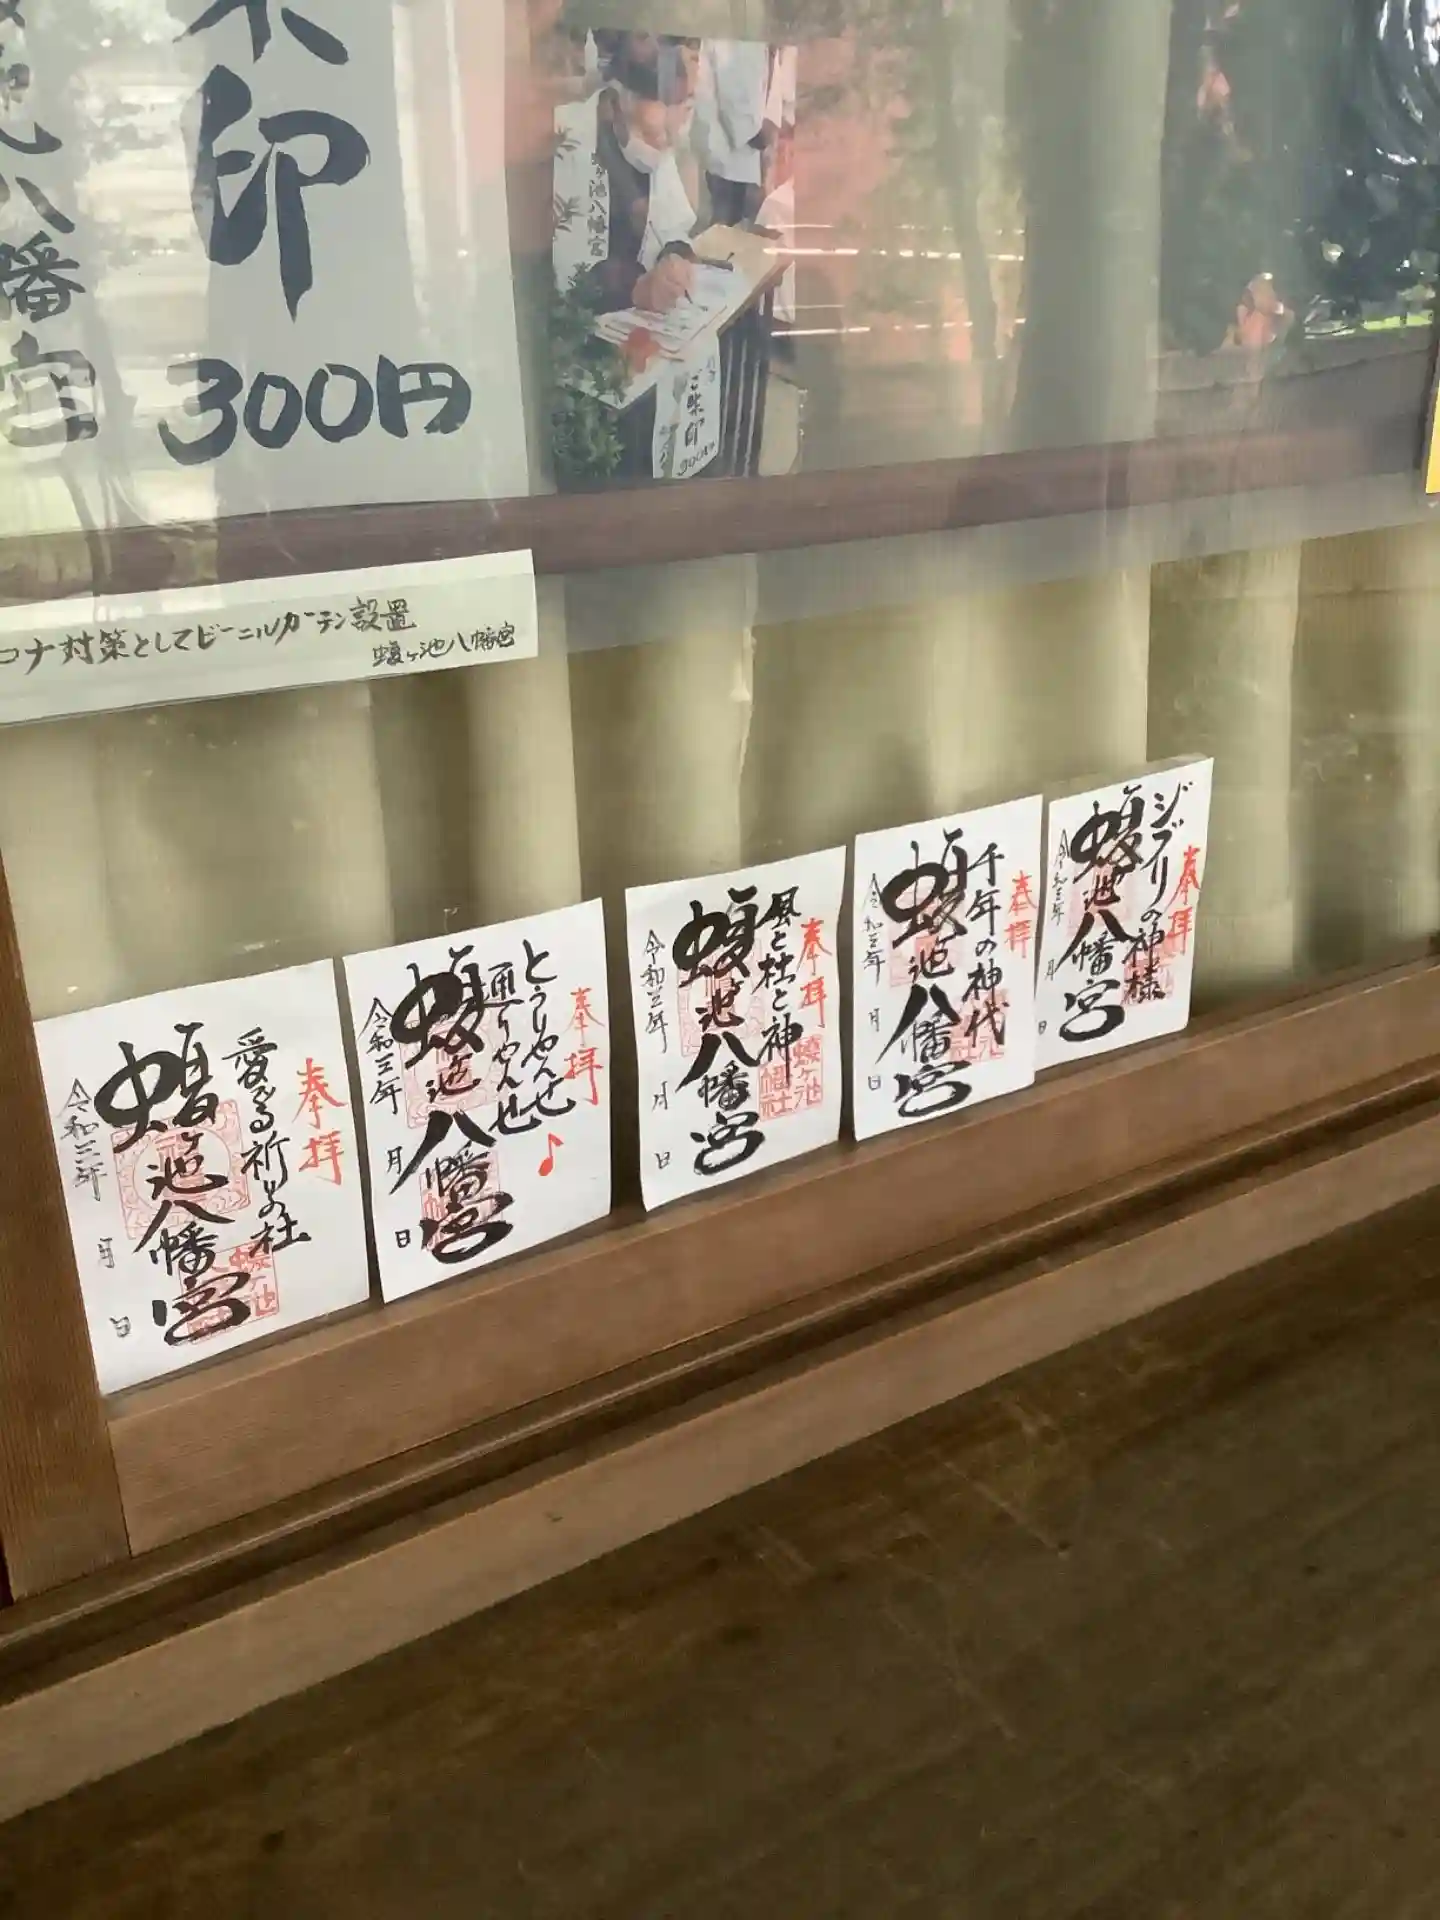 印
300円
八幡宮
蝮ヶ池八幡宮
ご朱印
300円
コロナ対策としてビーニルカーテン設置
蝮ヶ池八幡宮
奉拝
愛ずる祈りの社
蝮ヶ池八幡宮
令和三年 月 日
奉拝
とうりゃんせ
通りゃんせ♪
蝮ヶ池八幡宮
令和三年 月 日
奉拝
風と杜と神
蝮ヶ池八幡宮
令和三年 月 日
蝮ヶ池
幡社
奉拝
千年の神代
蝮ヶ池八幡宮
令和三年 月 日
奉拝
ジブリの神様
蝮ヶ池八幡宮
令和三年 月 日